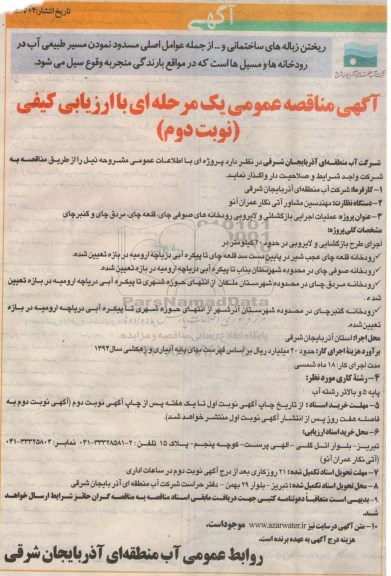 آگهی
تاریخ انتشار:
ریختن زباله های ساختمانی و... از جمله عوامل اصلی مسدود نمودن مسیر طبیعی آب در
رودخانه ها و مسیل ها است که در مواقع بارندگی منجر به وقوع سیل می شود.
آگهی مناقصه عمومی یک مرحله ای با ارزیابی کیفی
(نوبت دوم)
شرکت آب منطقه‌ای آذربایجان شرقی در نظر دارد پروژه ای با اطلاعات عمومی مشروحه ذیل را از طریق مناقصه به
شرکت واجد شرایط و صلاحیت دار واگذار نماید.
۱- کارفرما: شرکت آب منطقه‌ای آذربایجان شرقی
۲- دستگاه نظارت: مهندسین مشاور آتی نگار عمران آنو
۳- عنوان پروژه: عملیات اجرایی بازگشائی و لایروبی رودخانه های صوفی چای، قلعه چای، مردق چای و گنبرچای
مشخصات کلی پروژه:
اجرای طرح بازگشایی و لایروبی در حدود ۲۰ کیلومتر در
✓رودخانه قلعه چای عجب شیر در پایین دست سد قلعه چای تا پیکره آبی دریاچه ارومیه در بازه تعیین شده.
✓رودخانه صوفی چای در محدوده شهرستان بناب تا پیکره آبی دریاچه ارومیه در بازه تعیین شده.
✓رودخانه مردق چای در محدوده شهرستان ملکان از انتهای حوزه شهری تا پیکره آبی دریاچه ارومیه در بازه تعیین
شده.
✓رودخانه گنبرچای در محدوده شهرستان آذرشهر از انتهای حوزه شهری تا پیکره آبی دریاچه ارومیه در بازه
تعیین شده.
محل اجرا: استان آذربایجان شرقی
برآورد هزینه اجرای کار: حدود ۲۰ میلیارد ریال بر اساس فهرست بهای پایه آبیاری و زهکشی سال ۱۳۹۴
مدت اجرای کار: ۱۸ ماه شمسی
۴- رشته کاری مورد نظر:
پایه ۵ و بالاتر رشته آب
۵- مهلت خرید اسناد: از تاریخ چاپ آگهی نوبت اول تا یک هفته پس از چاپ آگهی نوبت دوم (آگهی نوبت دوم به
فاصله هفت روز پس از انتشار آگهی نوبت اول منتشر خواهد شد).
۶- محل خرید اسناد ارزیابی:
تبریز - بلوار ائل گلی - الهی پرست - کوچه پنجم - پلاک ۱۵ تلفن: ۲-۳۳۳۸۵۸۱-۰۴۱ نمابر: ۳۳۳۲۵۸۰۳-۰۴۱
(آتی نگار عمران آنو)
۷- مهلت تحویل اسناد تکمیل شده: ۲۱ روز کاری بعد از درج آگهی نوبت دوم در ساعات اداری
۸- محل تحویل اسناد تکمیل شده: تبریز - بلوار ۲۹ بهمن - دفتر حراست شرکت آب منطقه ای آذربایجان شرقی
۹- بدیهی است متعاقباً دعوتنامه کتبی جهت دریافت مابقی اسناد مناقصه به مناقصه گران حائز شرایط ارسال خواهد
شد.
۱۰- متن آگهی در سایت نیز www.azarwater.ir موجود است.
هزینه درج آگهی به عهده برنده است.
روابط عمومی آب منطقه‌ای آذربایجان شرقی